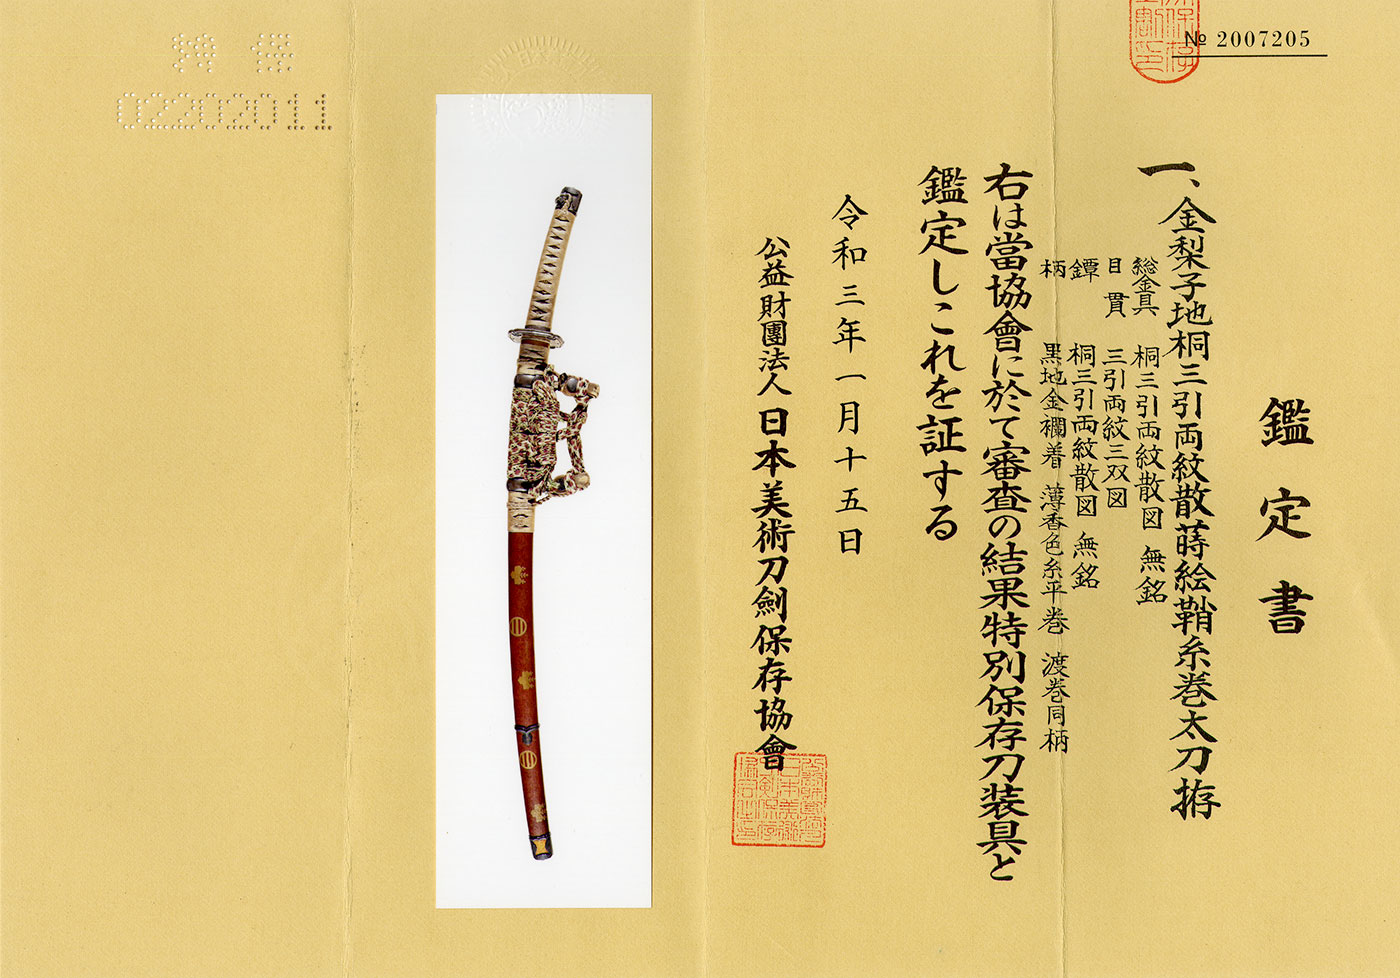 № 2007205
鑑定書
一、金梨子地桐三引両紋散蒔絵鞘糸巻太刀拵
総金具 桐三引両紋散図 無銘
目貫 三引両紋三双図
鐔 桐三引両紋散図 無銘
柄 黒地金襴着 薄香色糸平巻 渡巻同柄
右は當協會に於て審査の結果特別保存刀装具と
鑑定しこれを証する
令和三年一月十五日
公益財團法人 日本美術刀劍保存協會
02202011